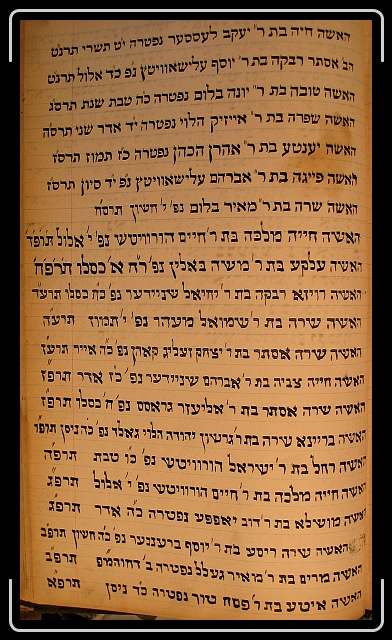 האשה חיה בת ר' יעקב לעססער נפטרה יט תשרי תרנט
הב אסתר רבקה בת ר' יוסף עלישאוויטץ נפ' כד אלול תרנט
האשה טובה בת ר' יונה בלום נפטרה כה טבת שנת תרסג
האשה שפרה בת ר' אייזיק הלוי נפטרה יד אדר שני תרסה
האשה יענטע בת ר' אהרן הכהן נפטרה כז תמוז תרסז
האשה פייגה בת ר' אברהם עלישאוויטץ נפ' יד סיון תרסז
האשה שרה בת ר' מאיר בלום נפ' י' חשון תרסח
האשיה חייה מלכה בת ר' חיים הורוויטשי נפ' י' אלול
האשיה עלקע בת ר' מישיה באלין נפ' ר"ח א' כסלו תרפ"ח
האשיה רויזא רבקה בת ר' יחיאל שניידער נפ' כ"ח כסלו תרע"ד
האשיה שירה בת ר' שימואל מעהר נפ' י' תמוז תרע"ה
האשיה שירה אסתר בת ר' יצחק זעליג קאהן נפ' כ"ה אייר תרע"ו
האשיה חייה צביה בת ר' אברהם שיניידער נפ' כ"ז אדר תרפ"ז
האשיה שירה אסתר בת ר' אליעזר גראסס נפ' ח' כסלו תרפ"ז
האשיה בריינא שירה בת ר' גרשון יהודה הלוי גאלד נפ' כ"ה ניסן תרפ"ו
האשיה רחל בת ר' ישיראל הורוויטשי נפ' כ"ו טבת תרפ"ה
האשיה חייה מלכה בת ר' חיים הורוויטשי נפ' י' אלול תרפ"ג
האשיה מושילא בת ר' דוב יאפפע נפטרה כ"ה אדר תרפ"ג
האשיה שירה ריסע בת ר' יוסף ברעננער נפ' כ"ה חשון תרפ"ב
האשיה מרים בת ר' מואיר געללע נפטרה ב' תרפ"ב
האשיה איטע בת ר' פסח טור נפטרה כ"ד ניסן תרפ"א